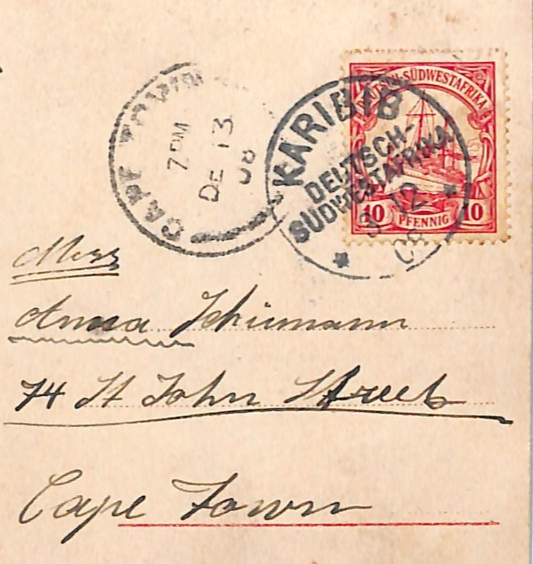 DEUTSCH-SÜDWESTAFRIKA
10 PFENNIG 10
KARIBIB
DEUTSCH-
SÜDWESTAFRIKA
12
08
CAPE TOWN
7 PM
DE 13
08
Miss
Anna Schümann
74 St John Street
Cape Town